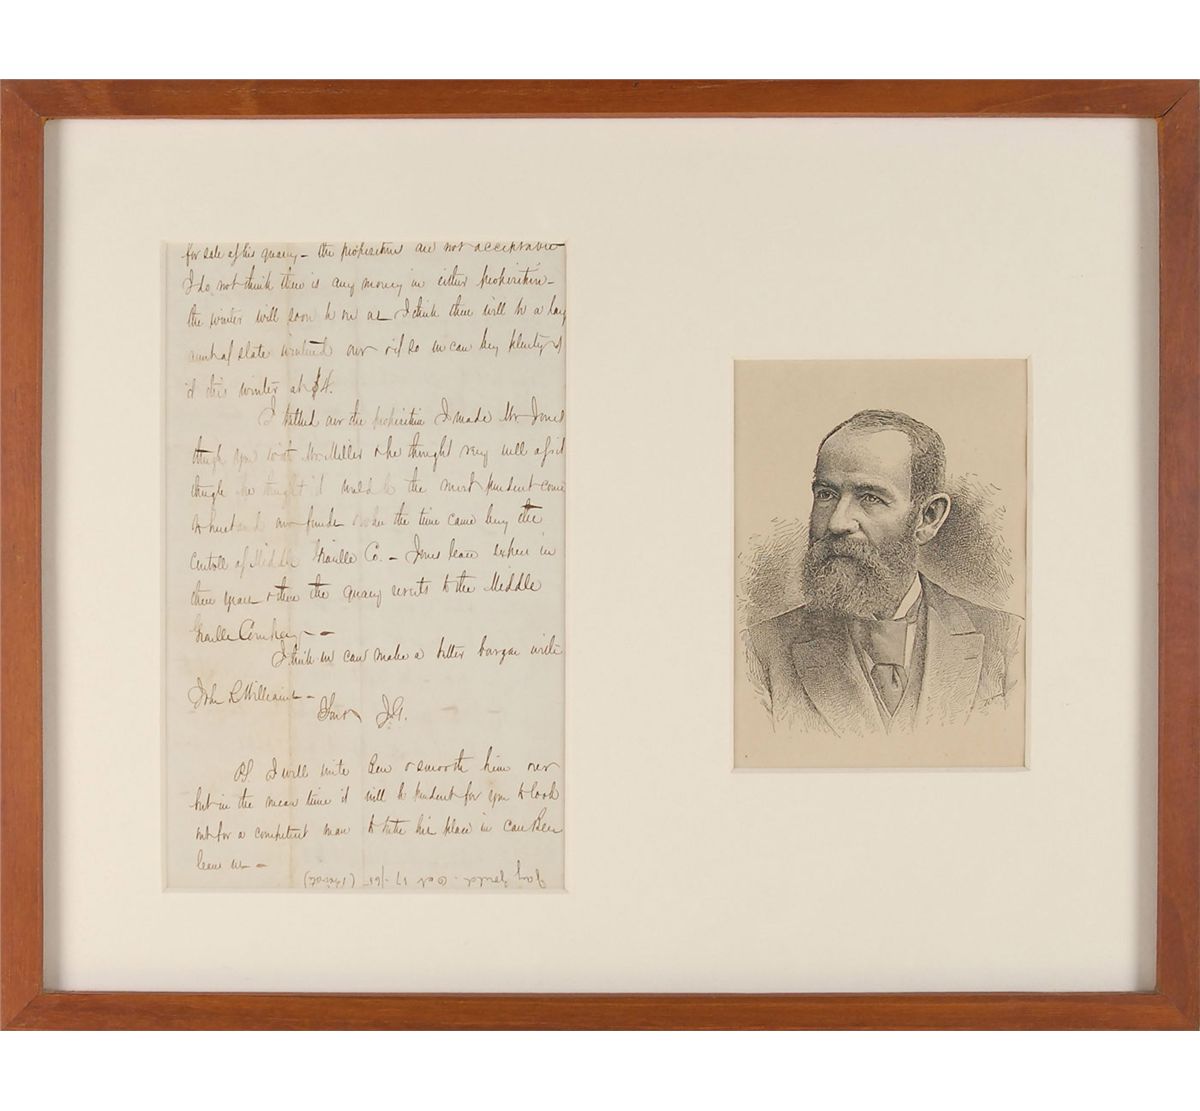 for sale of his quarry – the propositions are not acceptable
I do not think there is any money in either proposition –
the winter will soon be on us I think there will be a large
amt of slate wintered over & if so we can buy plenty of
it this winter at $4.
I talked over the proposition I made Mr Jones
through you with Mr Miller & he thought very well of it
though he thought it would be the most prudent course
to husband our funds & when the time came buy the
controll of Middle Granville Co. – Jones lease expires in
three years & then the quarry reverts to the Middle
Granville Company –
I think we can make a better bargain with
John R Williams –
Yours J.G.
PS I will write Ben & smooth him over
but in the mean time it will be prudent for you to look
out for a competent man to take his place in case Ben
leave us –
Jay Gould – Oct 17 /61 (Private)